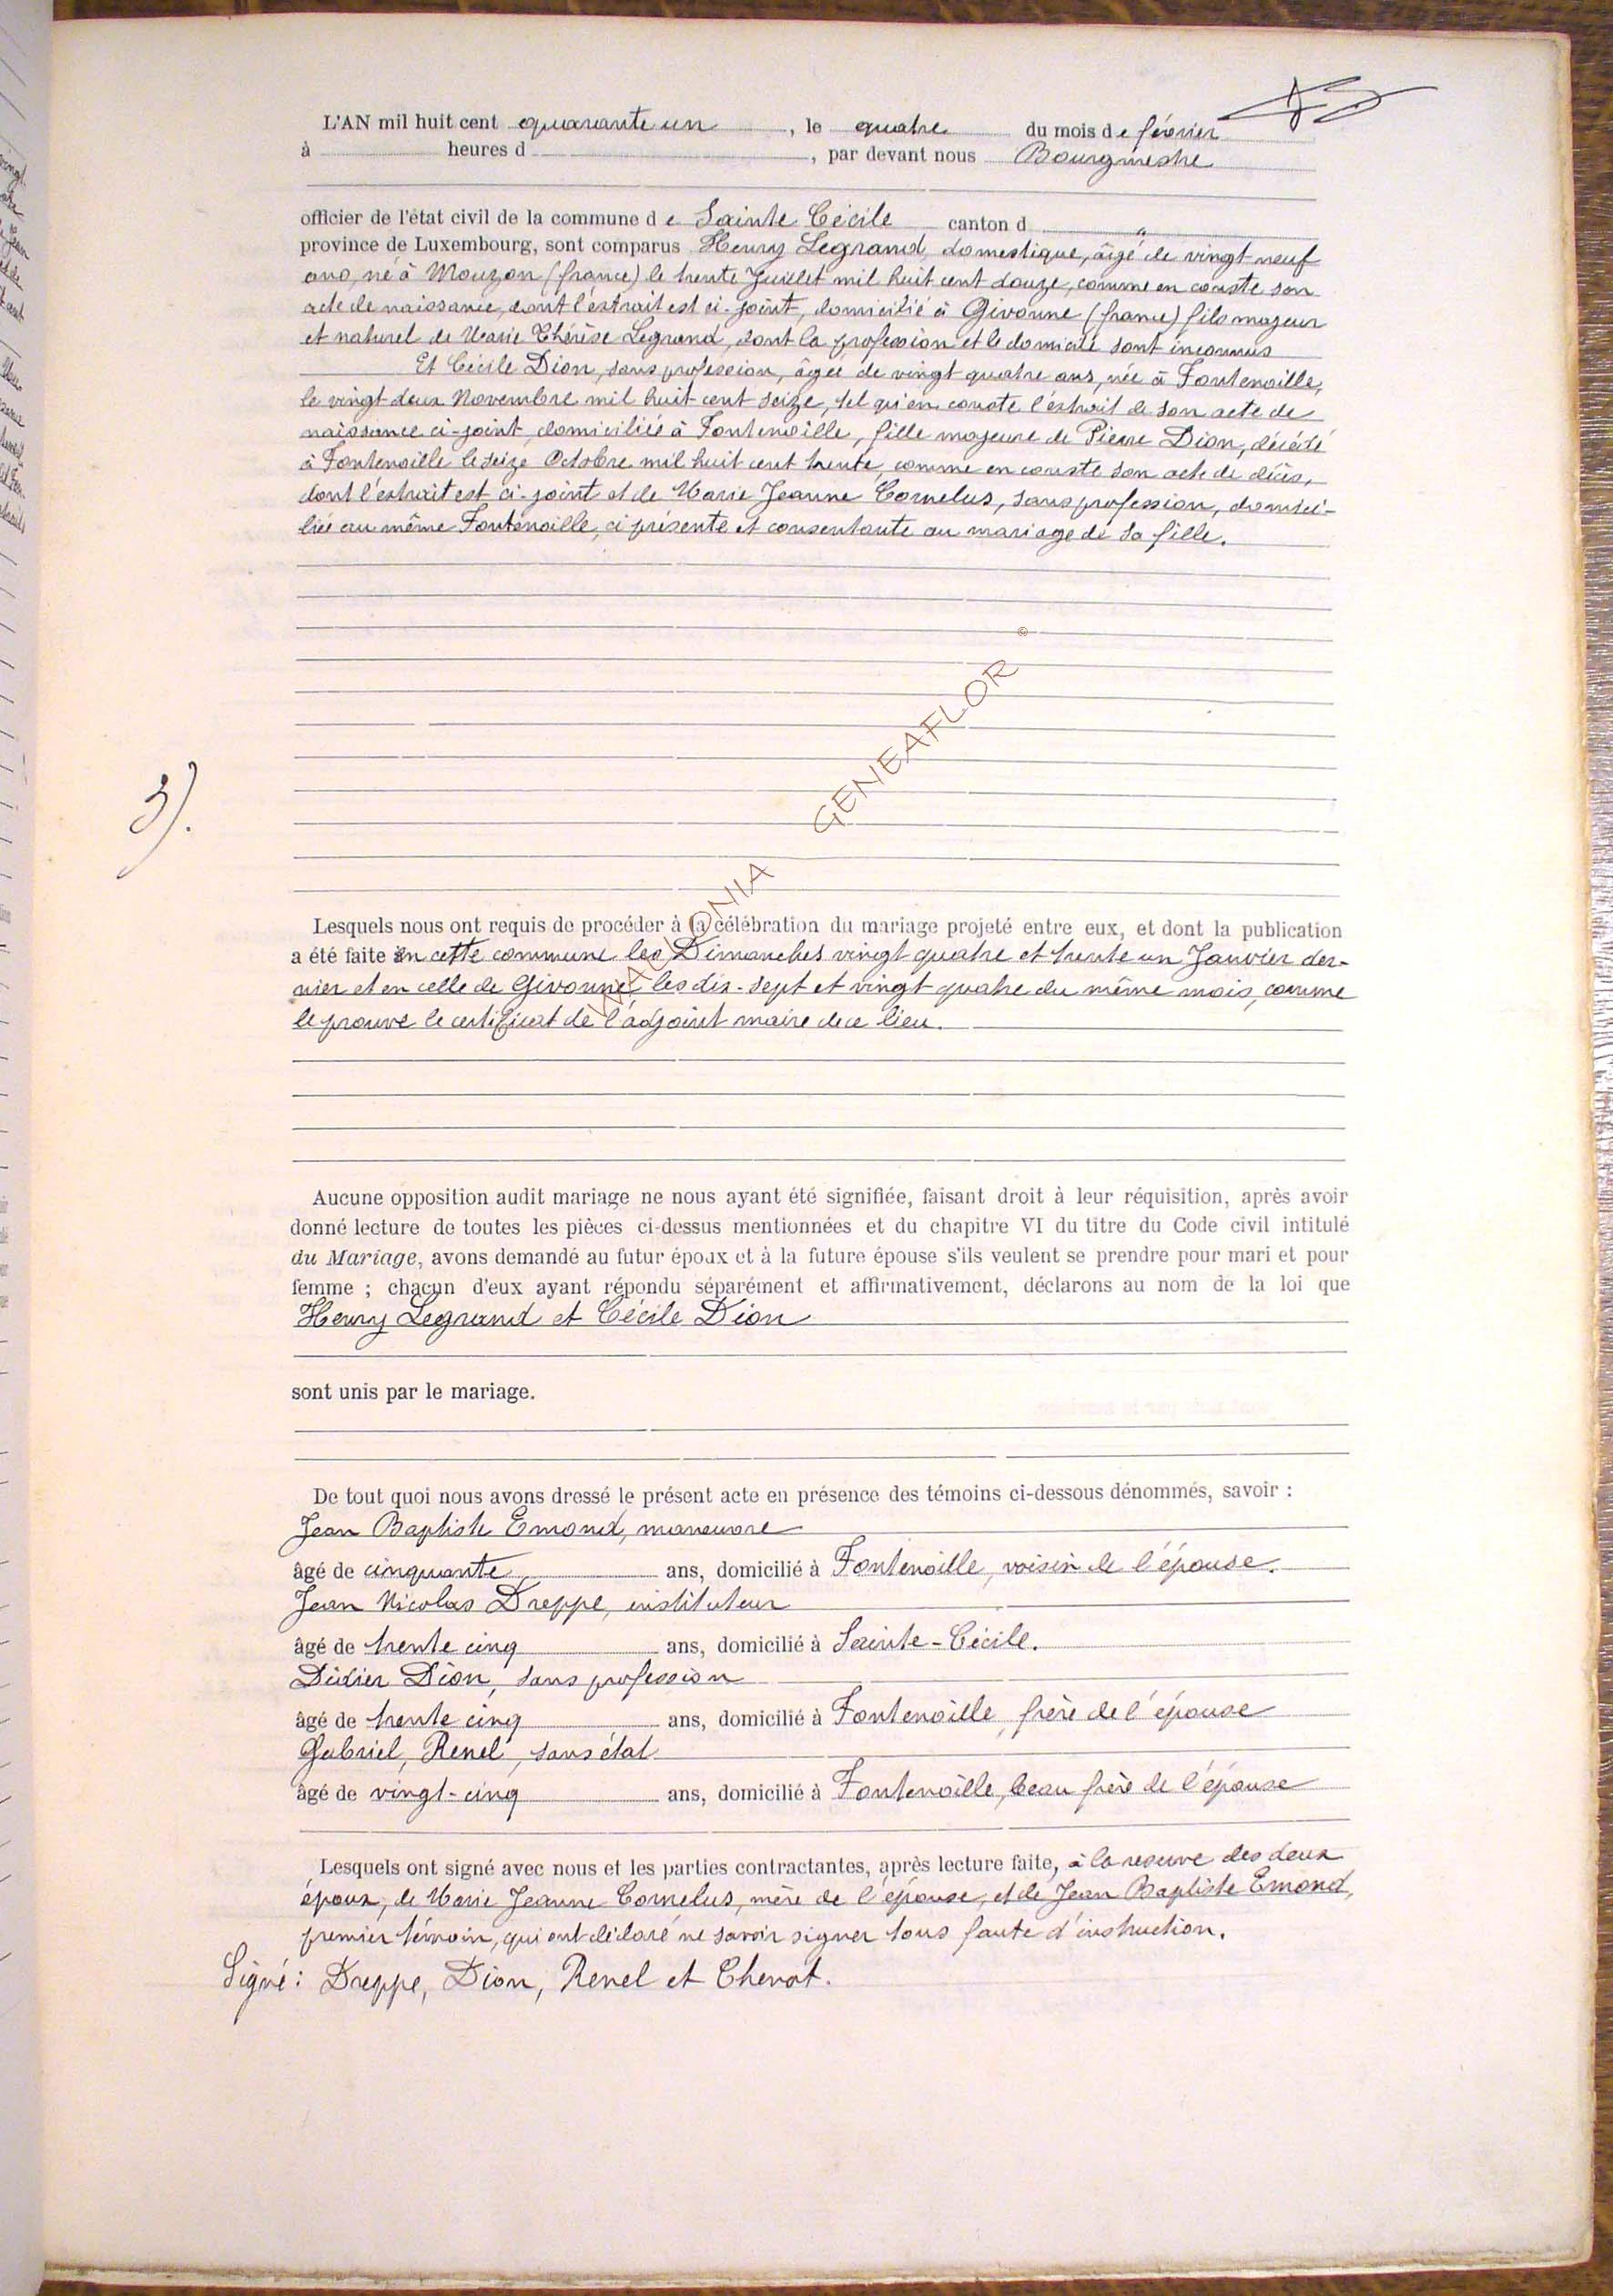 L'AN mil huit cent quarante un, le quatre du mois de février
à heures d , par devant nous Bourgmestre
officier de l'état civil de la commune de Sainte Cécile canton d "
province de Luxembourg, sont comparus Henry Legrand, domestique, âgé de vingt neuf
ans, né à Mouzon (france) le trente Juillet mil huit cent douze, comme en conste son
acte de naissance, dont l'extrait est ci-joint, domicilié à Givonne (france) fils majeur
et naturel de Marie Thérèse Legrand, dont la profession et le domicile sont inconnus
Et Cécile Dion, sans profession, âgée de vingt quatre ans, née à Fontenoille,
le vingt deux Novembre mil huit cent seize, tel qu'en conste l'extrait de son acte de
naissance ci-joint, domiciliée à Fontenoille, fille majeure de Pierre Dion, décédé
à Fontenoille le seize Octobre mil huit cent trente, comme en conste son acte de décès,
dont l'extrait est ci-joint et de Marie Jeanne Cornelus, sans profession, domici-
liée au même Fontenoille, ci présente et consentante au mariage de sa fille.
3).
IMAULONIA GENEAFLOR ©
Lesquels nous ont requis de procéder à la célébration du mariage projeté entre eux, et dont la publication
a été faite en cette commune les Dimanches vingt quatre et trente un Janvier der-
nier et en celle de Givonne les dix-sept et vingt quatre du même mois, comme
le prouve le certificat de l'adjoint maire de ce lieu.
Aucune opposition audit mariage ne nous ayant été signifiée, faisant droit à leur réquisition, après avoir
donné lecture de toutes les pièces ci-dessus mentionnées et du chapitre VI du titre du Code civil intitulé
du Mariage, avons demandé au futur époux et à la future épouse s'ils veulent se prendre pour mari et pour
femme ; chacun d'eux ayant répondu séparément et affirmativement, déclarons au nom de la loi que
Henry Legrand et Cécile Dion
sont unis par le mariage.
De tout quoi nous avons dressé le présent acte en présence des témoins ci-dessous dénommés, savoir :
Jean Baptiste Emond, manœuvre
âgé de cinquante ans, domicilié à Fontenoille, voisin de l'épouse.
Jean Nicolas Dreppe, instituteur
âgé de trente cinq ans, domicilié à Sainte-Cécile.
Didier Dion, sans profession
âgé de trente cinq ans, domicilié à Fontenoille, frère de l'épouse
Gabriel, Renel, sans état
âgé de vingt-cinq ans, domicilié à Fontenoille, beau frère de l'épouse
Lesquels ont signé avec nous et les parties contractantes, après lecture faite, à la reserve des deux
époux, de Marie Jeanne Cornelus, mère de l'épouse, et de Jean Baptiste Emond,
premier témoin, qui ont déclaré ne savoir signer tous faute d'instruction.
Signé : Dreppe, Dion, Renel et Chenot.